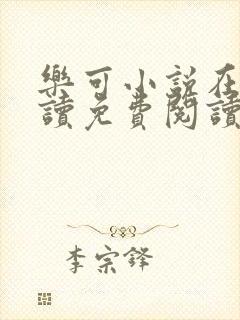 樂可小說在
讀免費閱讀
李宗鋒